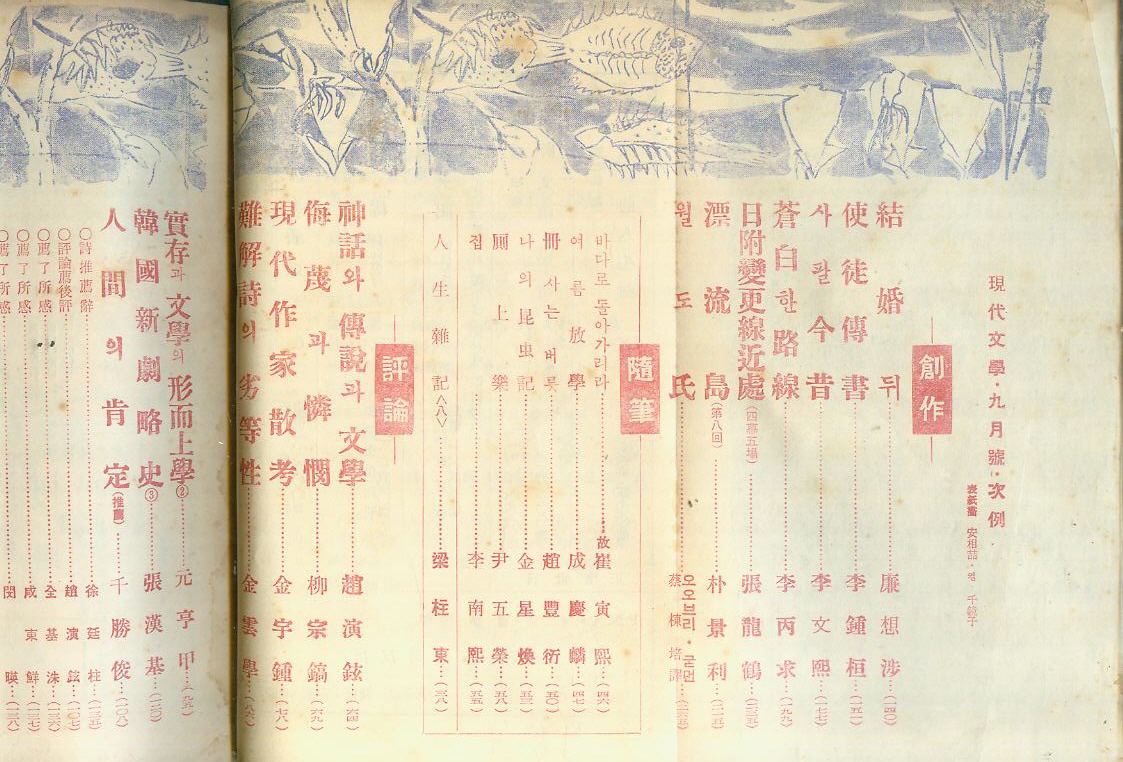 現代文學·九月號·次例
表紙畵 安相喆·컽 千鏡子
創作
結婚뒤 廉想涉 (一四〇)
使徒傳書 李鍾桓 (一五一)
사팔今昔 李文熙 (一七七)
蒼白한路線 李丙求 (一九九)
日附變更線近處 (四幕五場) 張龍鶴
漂流島 (第八回) 朴景利
월도氏 오오브리·굳먼 蔡棟培譯
隨筆
바다로돌아가리라 故崔寅熙 (四六)
여름放學 成慶麟 (四七)
冊사는버릇 趙豐衍 (五〇)
나의昆虫記 金星煥 (五三)
厠上樂 尹五榮 (五八)
집 李南熙 (五五)
人生雜記〈八〉 梁柱東 (三八)
評論
神話와傳說과文學 趙演鉉 (六四)
侮蔑과憐憫 柳宗鎬 (六九)
現代作家散考 金宇鍾 (七八)
難解詩의劣等性 金雲學 (八六)
實存과文學의形而上學② 元亨甲 (九五)
韓國新劇略史③ 張漢基 (一二〇)
人間의肯定 (推薦) 千勝俊 (一〇八)
〇詩推薦辭 徐廷柱 (一三五)
〇評論薦後評 趙演鉉 (一〇七)
〇薦了所感 全基洙 (一三六)
〇薦了所感 成東鮮 (一三七)
〇薦了所感 閔暎 (一三八)